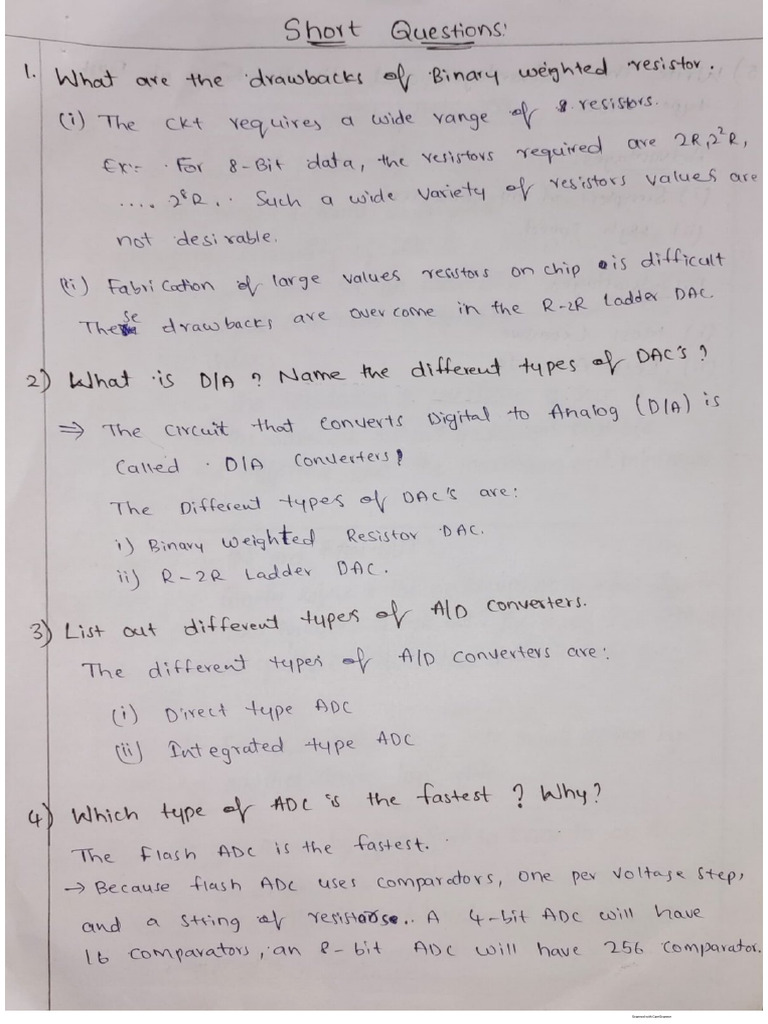 Short Questions:
1. What are the drawbacks of Binary weighted resistor.
(i) The ckt requires a wide range of resistors.
Ex:- For 8-Bit data, the resistors required are 2R, 2²R,
.... 2⁸R.. Such a wide variety of resistors values are
not desirable.
(ii) Fabrication of large values resistors on chip is difficult
These drawbacks are overcome in the R-2R Ladder DAC.
2) What is D/A ? Name the different types of DAC's ?
⇒ The circuit that converts Digital to Analog (D/A) is
called D/A converters!
The Different types of DAC's are:
i) Binary Weighted Resistor DAC.
ii) R-2R Ladder DAC.
3) List out different types of A/D converters.
The different types of A/D converters are:
(i) Direct type ADC
(ii) Integrated type ADC
4) Which type of ADC is the fastest ? Why?
The flash ADC is the fastest.
→ Because flash ADC uses comparators, one per voltage step,
and a string of resistors.. A 4-bit ADC will have
16 comparators, an 8-bit ADC will have 256 comparator.
Scanned with CamScanner